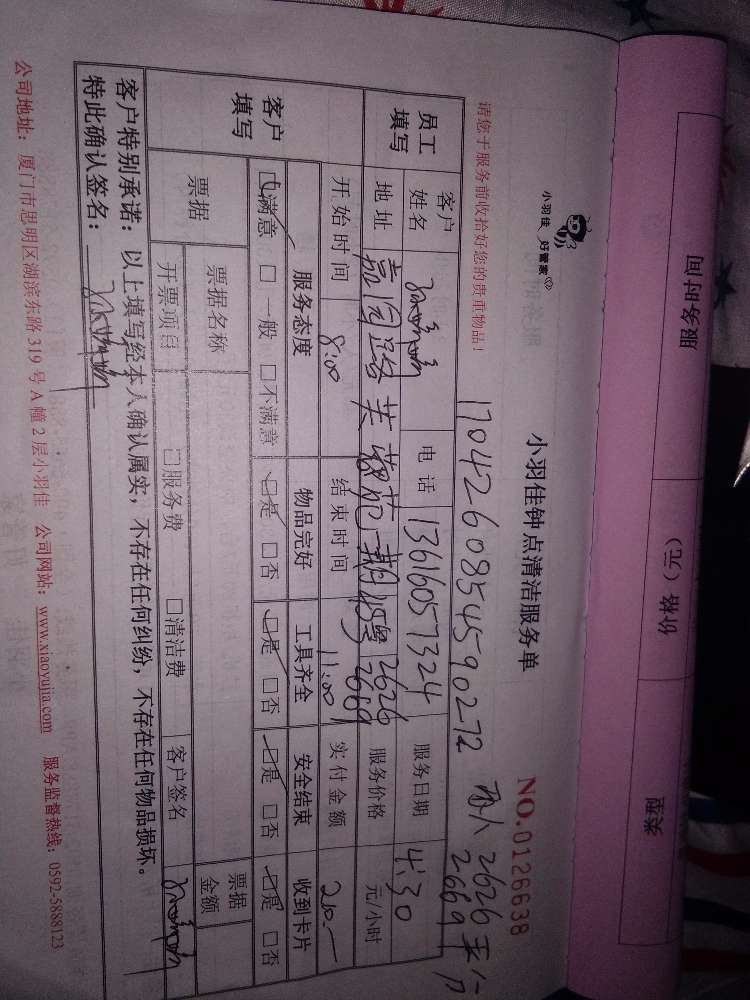 服务时间
价格（元）
类型
小羽佳 好管家
小羽佳钟点清洁服务单
NO.0126638
请您于服务前收拾好您的贵重物品！
1704260854590272
2626
2669 平分
员工填写
客户姓名
电话 13616057324
服务日期 4:30
地址
2626
2669
服务价格 元/小时
开始时间 8:00
结束时间 11:00
实付金额 200.—
客户填写
服务态度 物品完好 工具齐全 安全结束 收到卡片
☑满意 □一般 □不满意 ☑是 □否 ☑是 □否 ☑是 □否 ☑是 □否
票据
票据名称
票据金额
开票项目 □服务费 □清洁费 客户签名
客户特别承诺：以上填写经本人确认属实，不存在任何纠纷，不存在任何物品损坏。
特此确认签名：
公司地址：厦门市思明区湖滨东路319号A幢2层小羽佳 公司网站：www.xiaoyujia.com 服务监督热线：0592-5888123